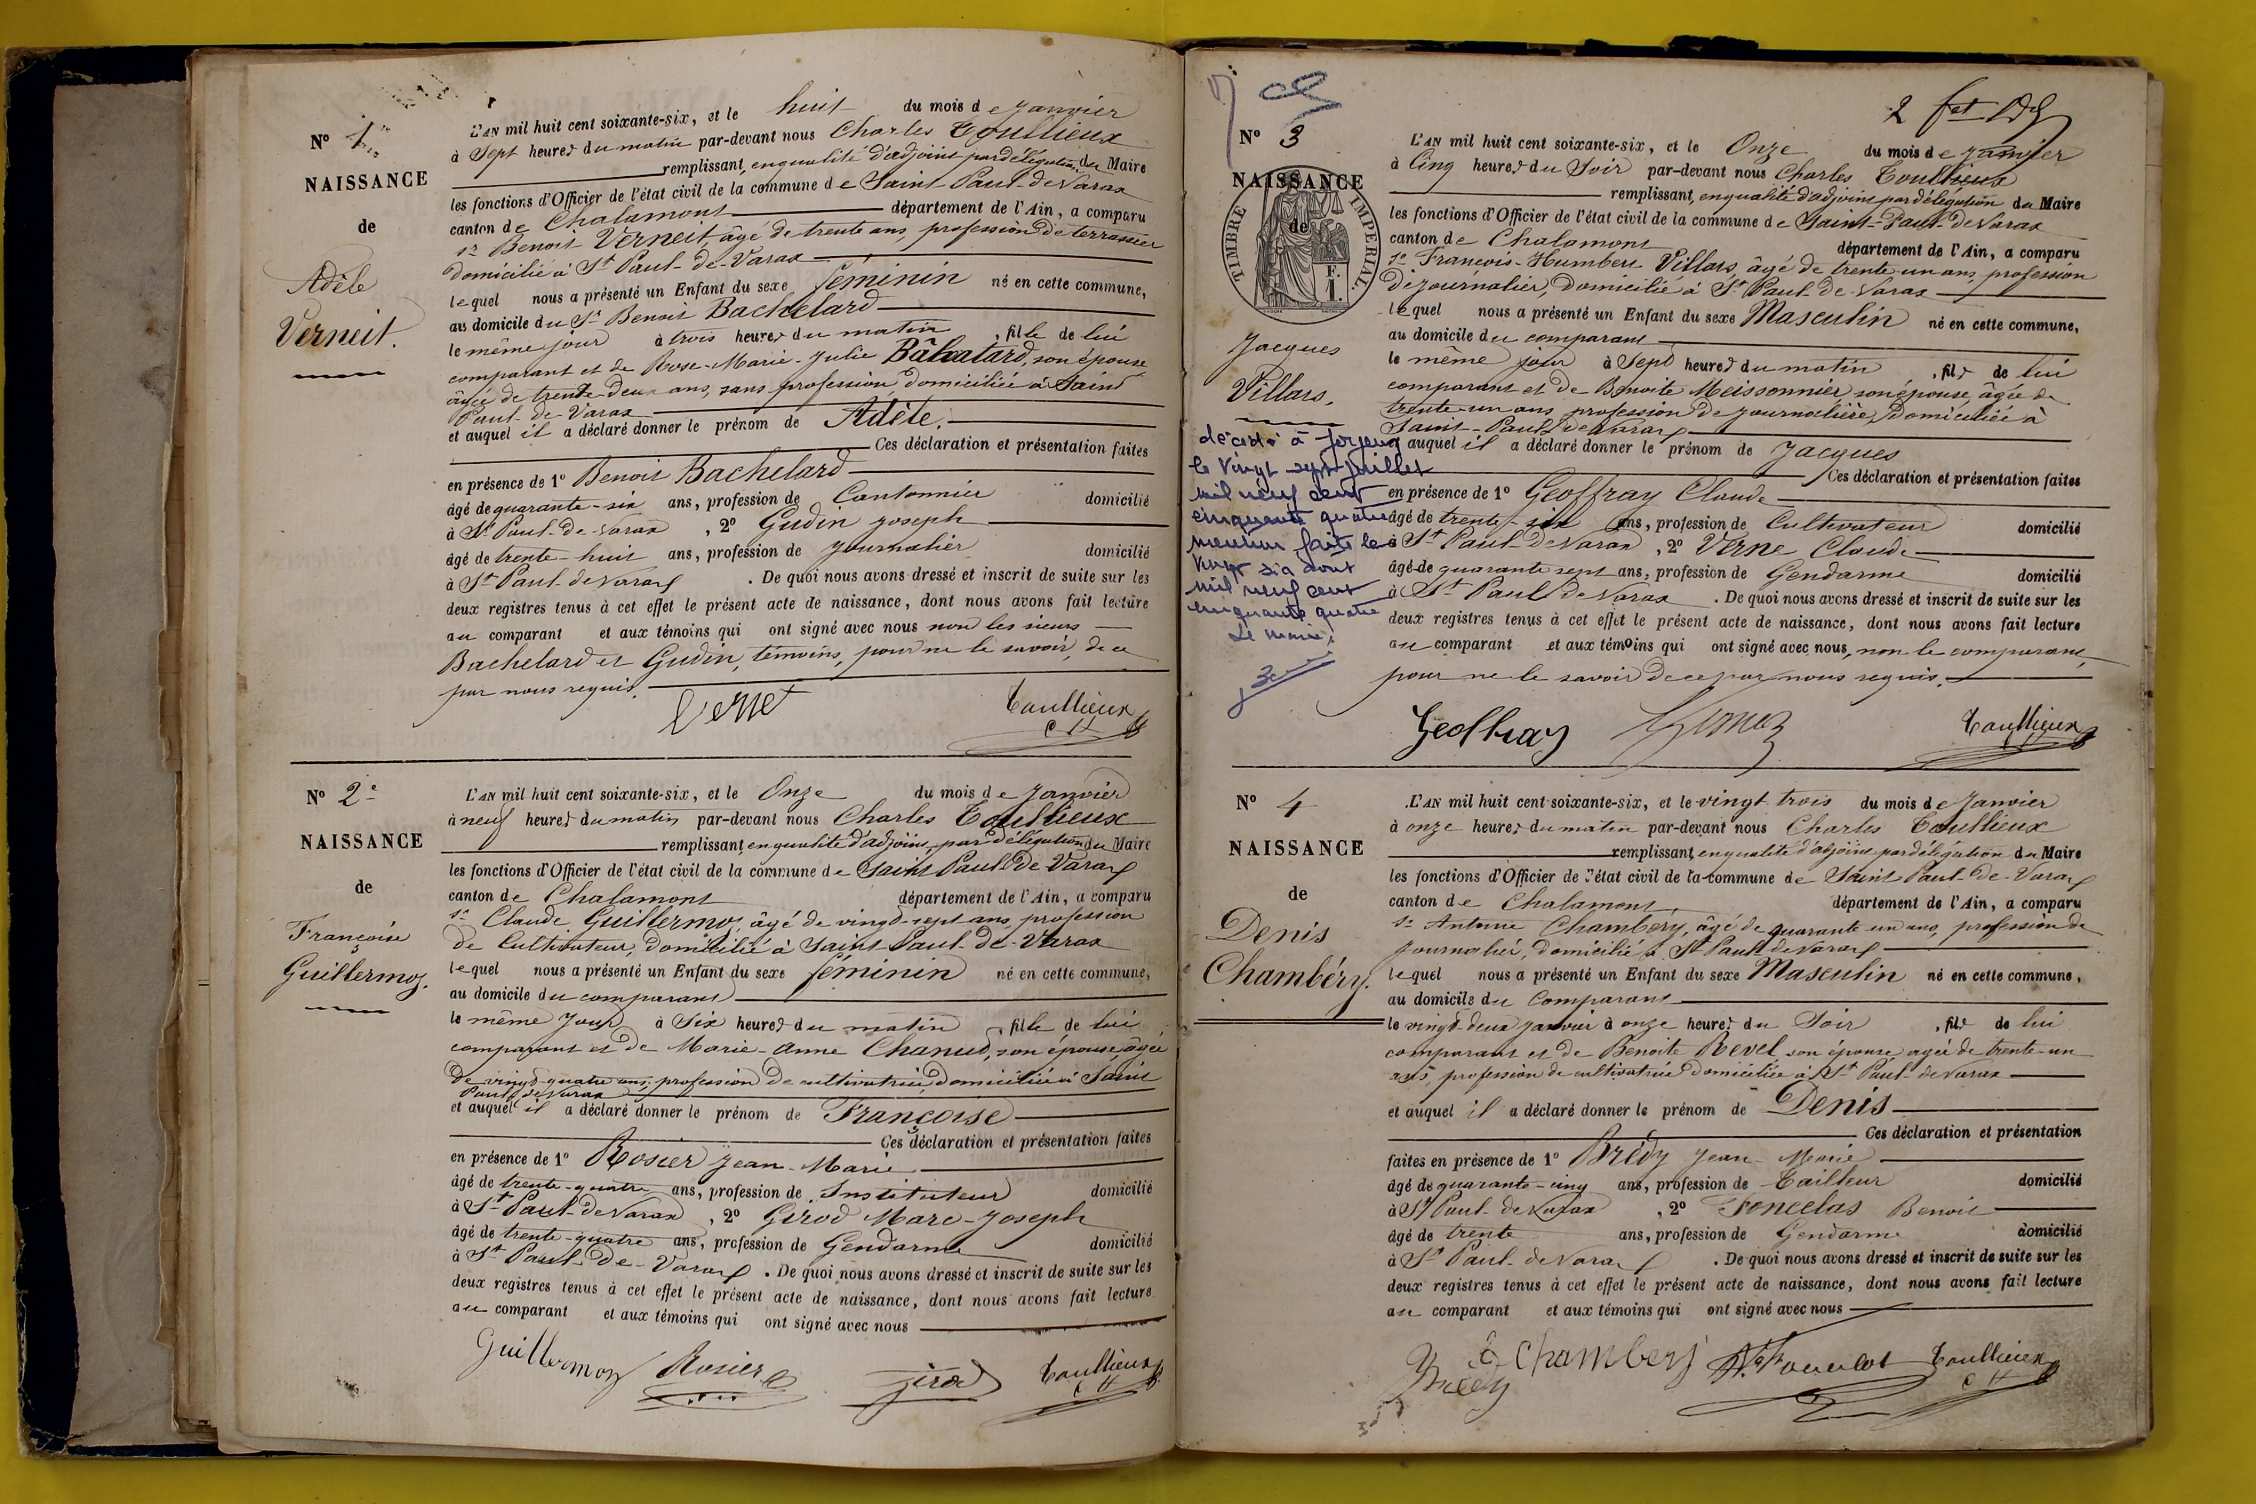 Nº 1er
NAISSANCE
de
Adèle
Verneit.
L'AN mil huit cent soixante-six, et le huit du mois de Janvier
à Sept heures du matin par-devant nous Charles Toullieux
remplissant, en qualité d'adjoint par délégation du Maire
les fonctions d'Officier de l'état civil de la commune de Saint-Paul-de-Varax
canton de Chalamont département de l'Ain, a comparu
sr Benoit Verneit, âgé de trente ans, profession de terrassier
domicilié à St Paul-de-Varax
lequel nous a présenté un Enfant du sexe féminin né en cette commune,
au domicile du Sr Benoit Bachelard
le même jour à trois heures du matin, fille de lui
comparant et de Rose-Marie-Julie Bâbatard, son épouse
âgée de trente-deux ans, sans profession domiciliée à Saint
Paul-de-Varax
et auquel il a déclaré donner le prénom de Adèle.
Ces déclaration et présentation faites
en présence de 1º Benoit Bachelard
âgé de quarante-six ans, profession de Cantonnier domicilié
à St Paul-de-Varax, 2º Gudin Joseph
âgé de trente-huit ans, profession de Journalier domicilié
à St Paul-de Varax. De quoi nous avons dressé et inscrit de suite sur les
deux registres tenus à cet effet le présent acte de naissance, dont nous avons fait lecture
au comparant et aux témoins qui ont signé avec nous non les sieurs
Bachelard et Gudin, témoins, pour ne le savoir, de ce
par nous requis.
Toullieux
Nº 2e
NAISSANCE
de
Françoise
Guillermoz.
L'AN mil huit cent soixante-six, et le Onze du mois de Janvier
à neuf heures du matin par-devant nous Charles Toullieux
remplissant, en qualité d'adjoint, par délégation du Maire
les fonctions d'Officier de l'état civil de la commune de Saint Paul de Varax
canton de Chalamont département de l'Ain, a comparu
sr Claude Guillermoz, âgé de vingt-sept ans, profession
de Cultivateur, domicilié à Saint Paul-de-Varax
lequel nous a présenté un Enfant du sexe féminin né en cette commune,
au domicile du comparant
le même Jour à Six heures du matin, fille de lui
comparant et de Marie-Anne Chanud, son épouse, âgée
de vingt-quatre ans, profession de cultivatrice domiciliée à Saint
Paul de Varax
et auquel il a déclaré donner le prénom de Françoise
Ces déclaration et présentation faites
en présence de 1º Rosier Jean-Marie
âgé de trente-quatre ans, profession de Instituteur domicilié
à St Paul-de Varax, 2º Girod Marc-Joseph
âgé de trente-quatre ans, profession de Gendarme domicilié
à St Paul-de-Varax. De quoi nous avons dressé et inscrit de suite sur les
deux registres tenus à cet effet le présent acte de naissance, dont nous avons fait lecture
au comparant et aux témoins qui ont signé avec nous
Guillermoz Rosier Girod Toullieux
2
Nº 3
NAISSANCE
de
TIMBRE IMPERIAL
F.
1.
Jacques
Villars.
décédé à
le vingt sept juillet
mil neuf cent
cinquante quatre
mention faite le
vingt six août
mil neuf cent
cinquante quatre
Le maire,
L'AN mil huit cent soixante-six, et le Onze du mois de Janvier
à Cinq heures du Soir par-devant nous Charles Toullieux
remplissant, en qualité d'adjoint par délégation du Maire
les fonctions d'Officier de l'état civil de la commune de Saint-Paul-de Varax
canton de Chalamont département de l'Ain, a comparu
sr François-Humbert Villars, âgé de trente-un ans, profession
de journalier, domicilié à St Paul-de-Varax
lequel nous a présenté un Enfant du sexe Masculin né en cette commune,
au domicile du comparant
le même jour à Sept heures du matin, fils de lui
comparant et de Benoite Meissonnier, son épouse, âgée de
trente-un ans, profession de Journalière, domiciliée à
Saint-Paul de Varax
auquel il a déclaré donner le prénom de Jacques
Ces déclaration et présentation faites
en présence de 1º Geoffray Claude
âgé de trente-six ans, profession de Cultivateur domicilié
à St Paul-de Varax, 2º Verne Claude
âgé de quarante sept ans, profession de Gendarme domicilié
à St Paul de Varax. De quoi nous avons dressé et inscrit de suite sur les
deux registres tenus à cet effet le présent acte de naissance, dont nous avons fait lecture
au comparant et aux témoins qui ont signé avec nous, non le comparant,
pour ne le savoir de ce par nous requis.
Geoffray Toullieux
Nº 4
NAISSANCE
de
Denis
Chambéry.
L'AN mil huit cent soixante-six, et le vingt trois du mois de Janvier
à onze heures du matin par-devant nous Charles Toullieux
remplissant, en qualité d'adjoint par délégation du Maire
les fonctions d'Officier de l'état civil de la commune de Saint Paul-de-Varax
canton de Chalamont, département de l'Ain, a comparu
sr Antoine Chambéry, âgé de quarante un ans, profession de
Journalier, domicilié à St Paul de Varax
lequel nous a présenté un Enfant du sexe Masculin né en cette commune,
au domicile du Comparant
le vingt-deux janvier à onze heures du Soir, fils de lui
comparant et de Benoite Revel son épouse âgée de trente-un
ans, profession de cultivatrice domiciliée à St Paul-de Varax
et auquel il a déclaré donner le prénom de Denis
Ces déclaration et présentation
faites en présence de 1º Brédy Jean-Marie
âgé de quarante-cinq ans, profession de Tailleur domicilié
à St Paul-de Varax, 2º Foncelas Benoit
âgé de trente ans, profession de Gendarme domicilié
à St Paul-de Varax. De quoi nous avons dressé et inscrit de suite sur les
deux registres tenus à cet effet le présent acte de naissance, dont nous avons fait lecture
au comparant et aux témoins qui ont signé avec nous
Chambery Toullieux